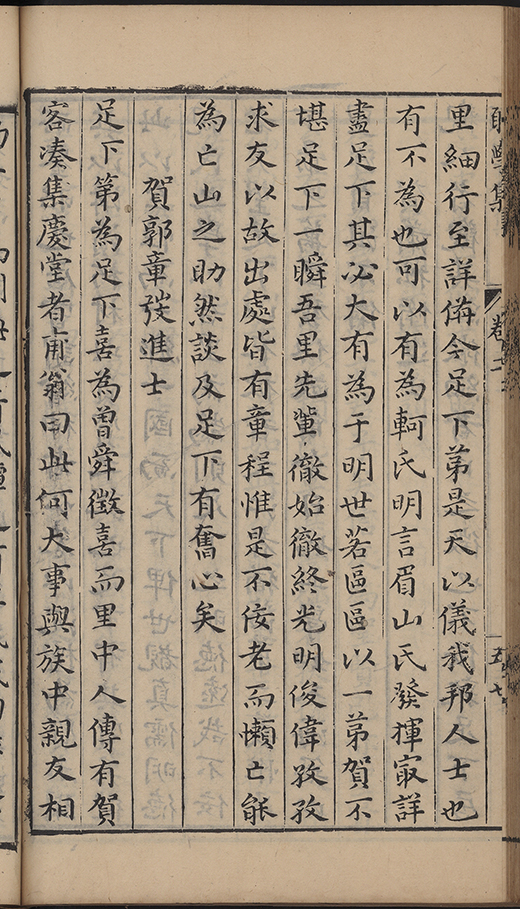 里細行至詳俻今足下苐是天以儀我邦人士也
有不為也可以有為軻氏明言眉山氏發揮㝡詳
盡足下其必大有為于明世若區區以一苐賀不
堪足下一瞬吾里先軰徹始徹終光明俊偉孜孜
求友以故出處皆有章程惟是不侫老而懶亡能
為亡山之助然談及足下有奮心矣
賀郭章弢進士
足下第為足下喜為曾舜徵喜而里中人傳有賀
客凑集慶堂者甫翁曰此何大事與族中親友相